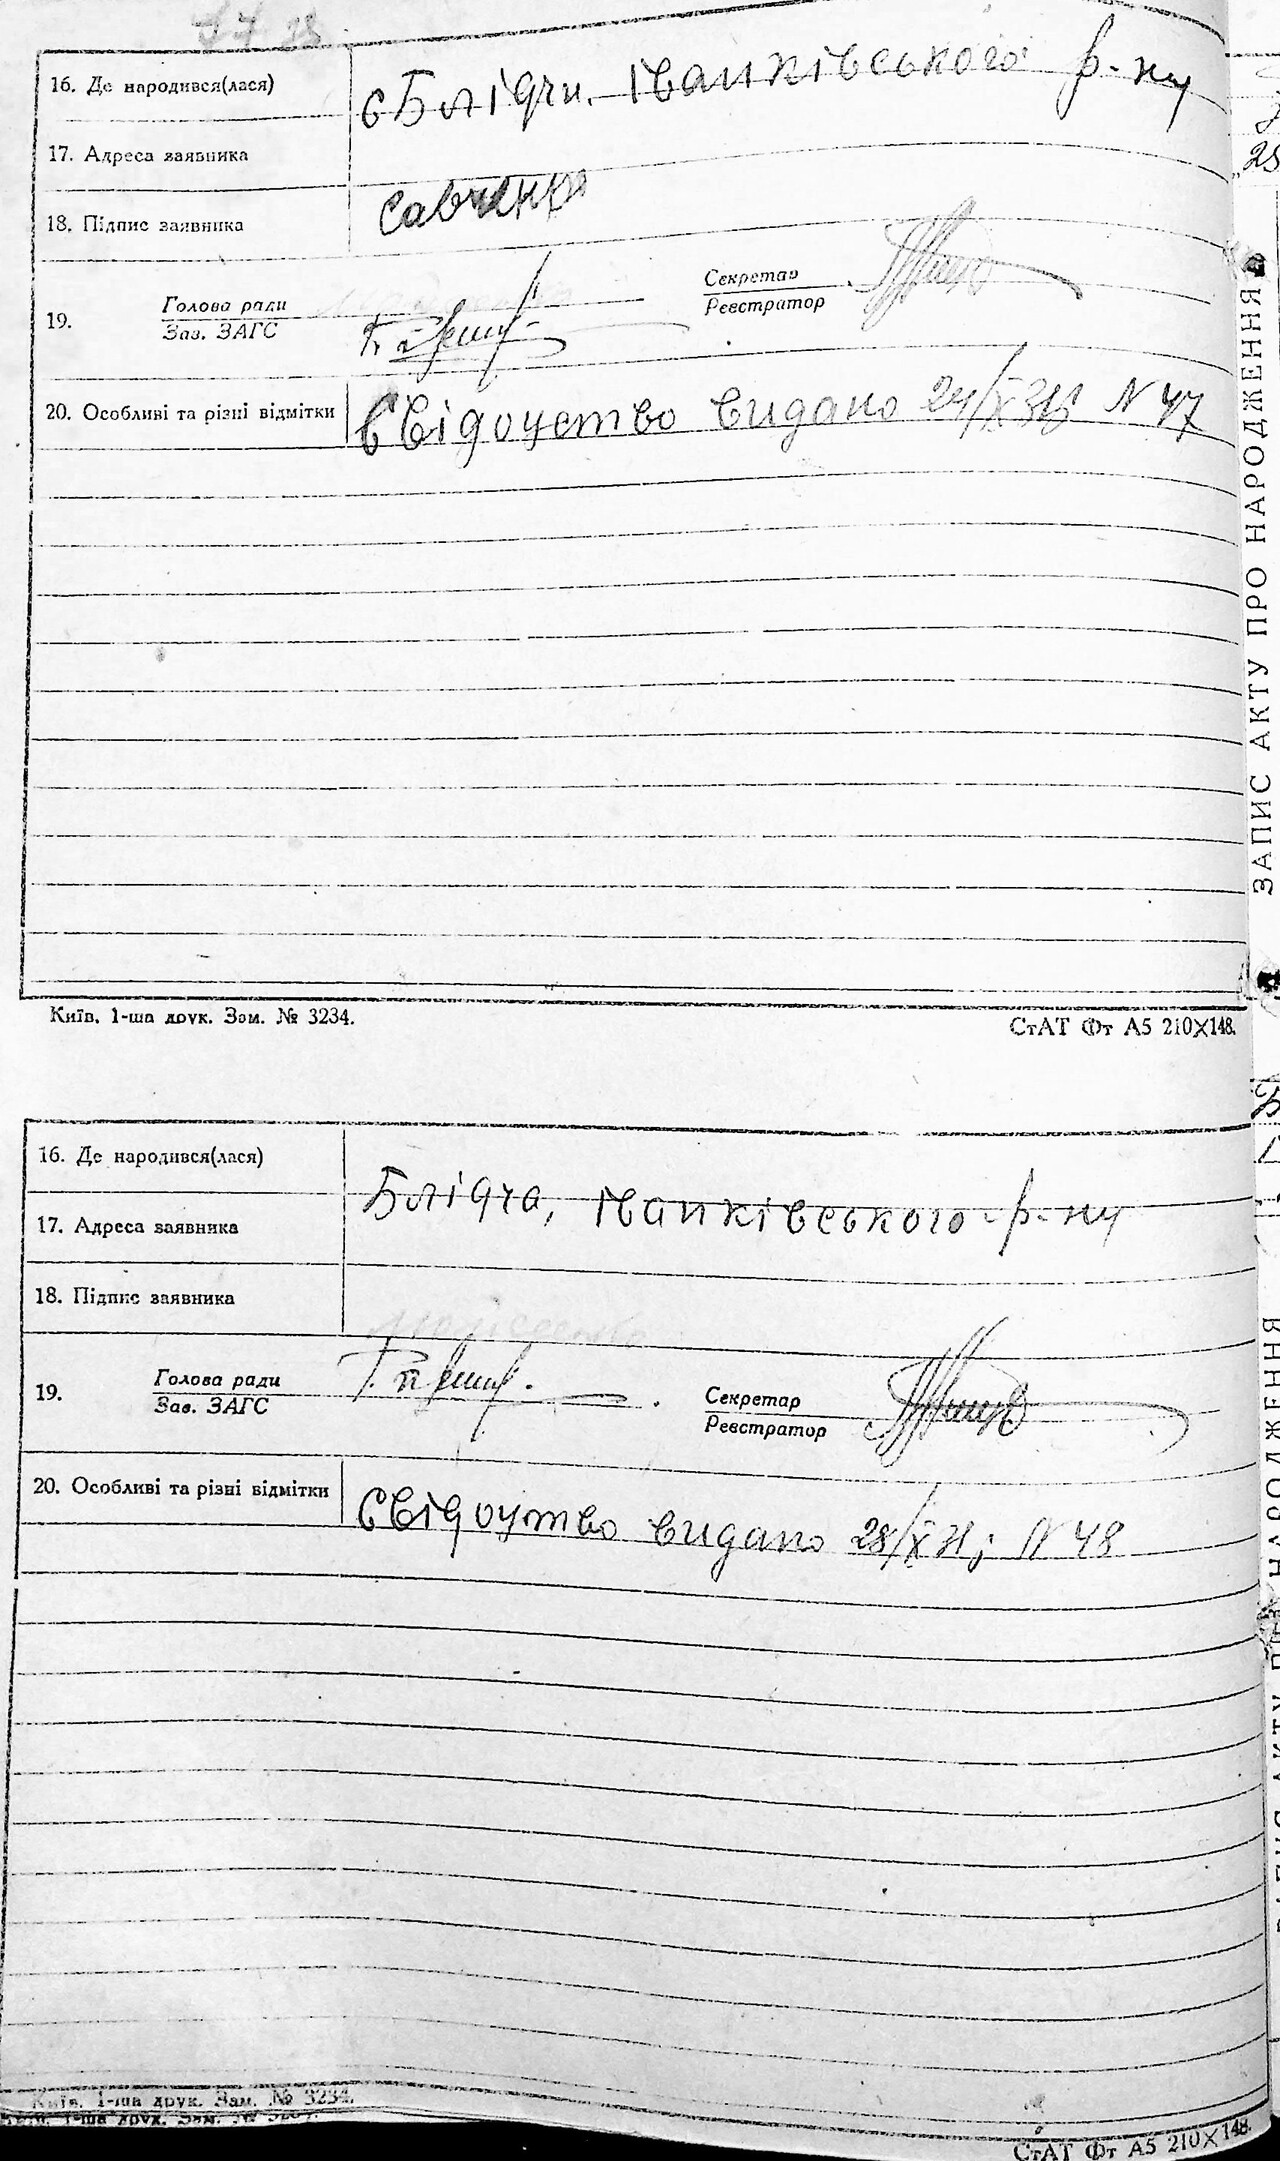 16. Де народився(лася)
с Блідчи. Іванківського р-ну
17. Адреса заявника
18. Підпис заявника
Савченко
19. Голова ради
Зав. ЗАГС
Секретар
Реєстратор
20. Особливі та різні відмітки
Свідоцтво видано 24/X N 47
Київ. 1-ша друк. Зам. № 3234.
СтАТ Фт А5 210X148.
ЗАПИС АКТУ ПРО НАРОДЖЕННЯ
16. Де народився(лася)
Блідча, Іванківського р-ну
17. Адреса заявника
18. Підпис заявника
19. Голова ради
Зав. ЗАГС
Секретар
Реєстратор
20. Особливі та різні відмітки
Свідоцтво видано 28/X N 48
Київ. 1-ша друк. Зам. № 3234.
СтАТ Фт А5 210X148.